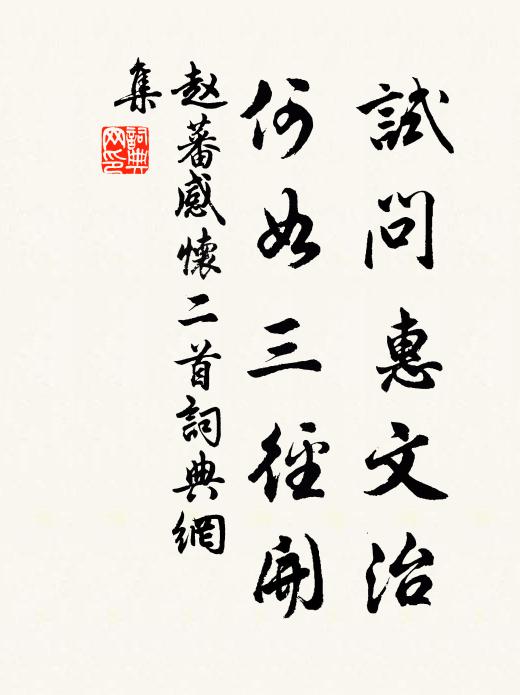 試問惠文治
何如三徑開
赵蕃感懷二首詞典網
集
詞典
网印